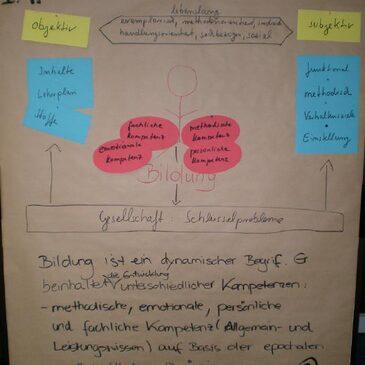 Objektiv
lebenslang
exemplarisch, methodenorientiert,
handlungsorientiert, sachbezogen, sozial
subjektiv
Inhalte
Lehrplan
Stoffe
funktional
methodisch
Verhaltensziele
Einstellung
fachliche
Kompetenz
methodische
Kompetenz
emotionale
Kompetenz
persönliche
Kompetenz
Bildung
Gesellschaft: Schlüsselprobleme
Bildung ist ein dynamischer Begriff. Er
die Entwicklung
beinhaltet unterschiedlicher Kompetenzen:
- methodische, emotionale, persönliche
und fachliche Kompetenz (Allgemein- und
Leistungswissen) auf Basis der epochalen